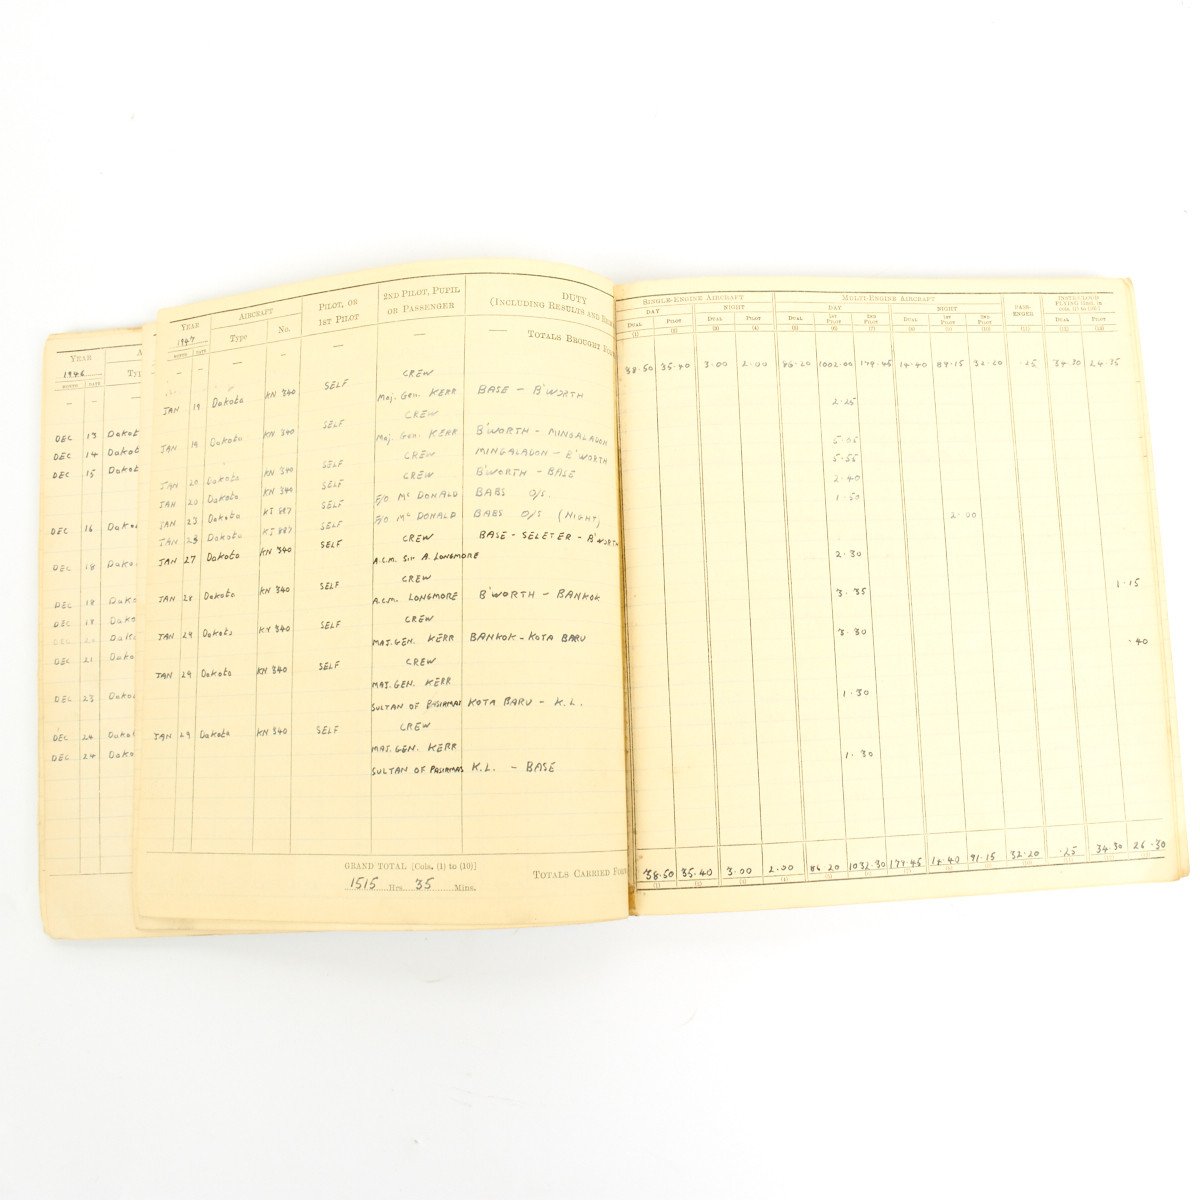 YEAR
1946
MONTH DATE
DEC 13 Dakot
DEC 14 Dakot
DEC 15 Dakot
DEC 16 Dako
DEC 18 Dako
DEC 18 Dako
DEC 18 Dako
DEC 20 Dako
DEC 21 Dako
DEC 23 Dako
DEC 24 Dako
DEC 24 Dako
YEAR AIRCRAFT PILOT, OR 1ST PILOT 2ND PILOT, PUPIL OR PASSENGER DUTY (INCLUDING RESULTS AND
1947 Type No.
MONTH DATE
— — — — — — — TOTALS BROUGHT FOR
CREW
JAN 19 Dakota KN 340 SELF Maj. Gen. KERR BASE - B'WORTH
CREW
JAN 19 Dakota KN 340 SELF Maj. Gen. KERR B'WORTH - MINGALADON
JAN 20 Dakota KN 340 SELF CREW MINGALADON - B'WORTH
JAN 20 Dakota KN 340 SELF CREW B'WORTH - BASE
JAN 23 Dakota KJ 887 SELF F/O McDONALD BABS O/S.
JAN 23 Dakota KJ 887 SELF F/O McDONALD BABS O/S (NIGHT)
JAN 27 Dakota KN 340 SELF CREW BASE - SELETER - B'WORTH
A.C.M. SIR A. LONGMORE
CREW
JAN 28 Dakota KN 340 SELF A.C.M. LONGMORE B'WORTH - BANKOK
CREW
JAN 29 Dakota KN 340 SELF MAJ. GEN. KERR BANKOK - KOTA BARU
JAN 29 Dakota KN 340 SELF CREW
MAJ. GEN. KERR
SULTAN OF PASIRMAS KOTA BARU - K.L.
JAN 29 Dakota KN 340 SELF CREW
MAJ. GEN. KERR
SULTAN OF PASIRMAS K.L. - BASE
GRAND TOTAL [Cols. (1) to (10)]
1515 Hrs 35 Mins.
TOTALS CARRIED FOR
SINGLE-ENGINE AIRCRAFT MULTI-ENGINE AIRCRAFT PASS-ENGER INSTR/CLOUD FLYING [Incl. in cols. (1) to (10)]
DAY NIGHT DAY NIGHT
DUAL PILOT DUAL PILOT DUAL 1ST PILOT 2ND PILOT DUAL 1ST PILOT 2ND PILOT DUAL PILOT
(1) (2) (3) (4) (5) (6) (7) (8) (9) (10) (11) (12) (13)
38.50 35.40 3.00 2.00 86.20 1002.00 179.45 14.40 89.15 32.20 .25 34.30 24.35
2.25
5.05
5.55
2.40
1.50
2.00
2.30
3.35 1.15
3.30 .40
1.30
1.30
38.50 35.40 3.00 2.00 86.20 1032.30 179.45 14.40 91.15 32.20 .25 34.30 26.30